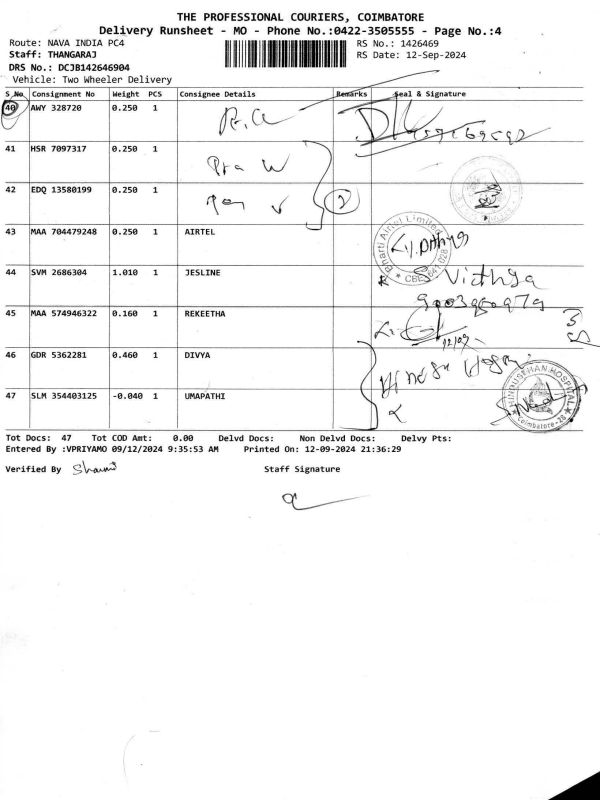 THE PROFESSIONAL COURIERS, COIMBATORE
Delivery Runsheet - MO - Phone No.:0422-3505555 - Page No.:4
Route: NAVA INDIA PC4
RS No.: 1426469
Staff: THANGARAJ
RS Date: 12-Sep-2024
DRS No.: DCJB142646904
Vehicle: Two Wheeler Delivery
S.No. Consignment No Weight PCS Consignee Details Remarks Seal & Signature
40 AWY 328720 0.250 1 R.a
41 HSR 7097317 0.250 1
42 EDQ 13580199 0.250 1 2
43 MAA 704479248 0.250 1 AIRTEL Bharti Airtel Limited
44 SVM 2686304 1.010 1 JESLINE Vidhya
45 MAA 574946322 0.160 1 REKEETHA 12/09
46 GDR 5362281 0.460 1 DIVYA
47 SLM 354403125 -0.040 1 UMAPATHI HINDUSTHAN HOSPITAL Coimbatore-28
Tot Docs: 47 Tot COD Amt: 0.00 Delvd Docs: Non Delvd Docs: Delvy Pts:
Entered By :VPRIYAMO 09/12/2024 9:35:53 AM Printed On: 12-09-2024 21:36:29
Verified By
Staff Signature